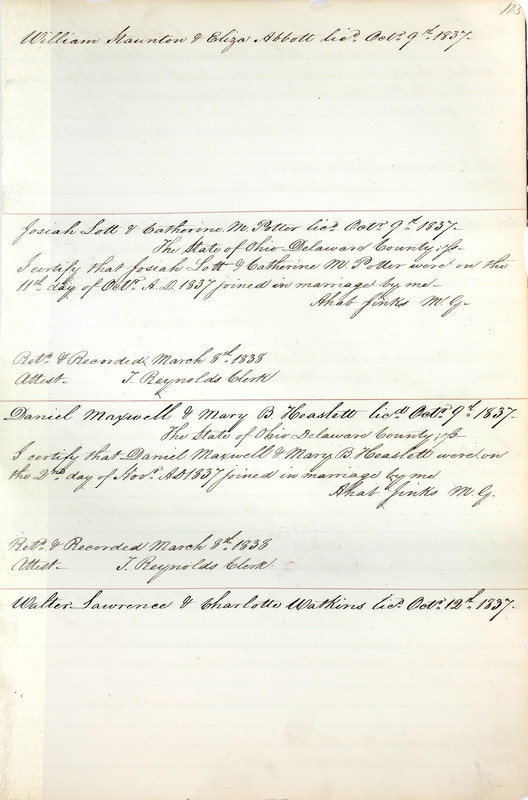 103
William Staunton & Eliza Abbott licd. Octr. 9th. 1837-
Josiah Lott & Catherine M. Potter licd. Octr. 9th. 1837-
The State of Ohio Delaware County; ss-
I certify that Josiah Lott & Catherine M. Potter were on the
11th. day of Octr. A.D. 1837 joined in marriage by me-
Ahab Jinks M. G.
Retd. & Recorded March 8th. 1838
Attest- T. Reynolds Clerk
Daniel Maxwell & Mary B. Heaslett licd. Octr. 9th. 1837-
The State of Ohio Delaware County; ss-
I certify that Daniel Maxwell & Mary B. Heaslett were on
the 2nd. day of Novr. AD 1837 joined in marriage by me
Ahab Jinks M. G.
Retd. & Recorded March 8th. 1838
Attest- T. Reynolds Clerk
Walter Lawrence & Charlotte Watkins licd. Octr. 12th. 1837-